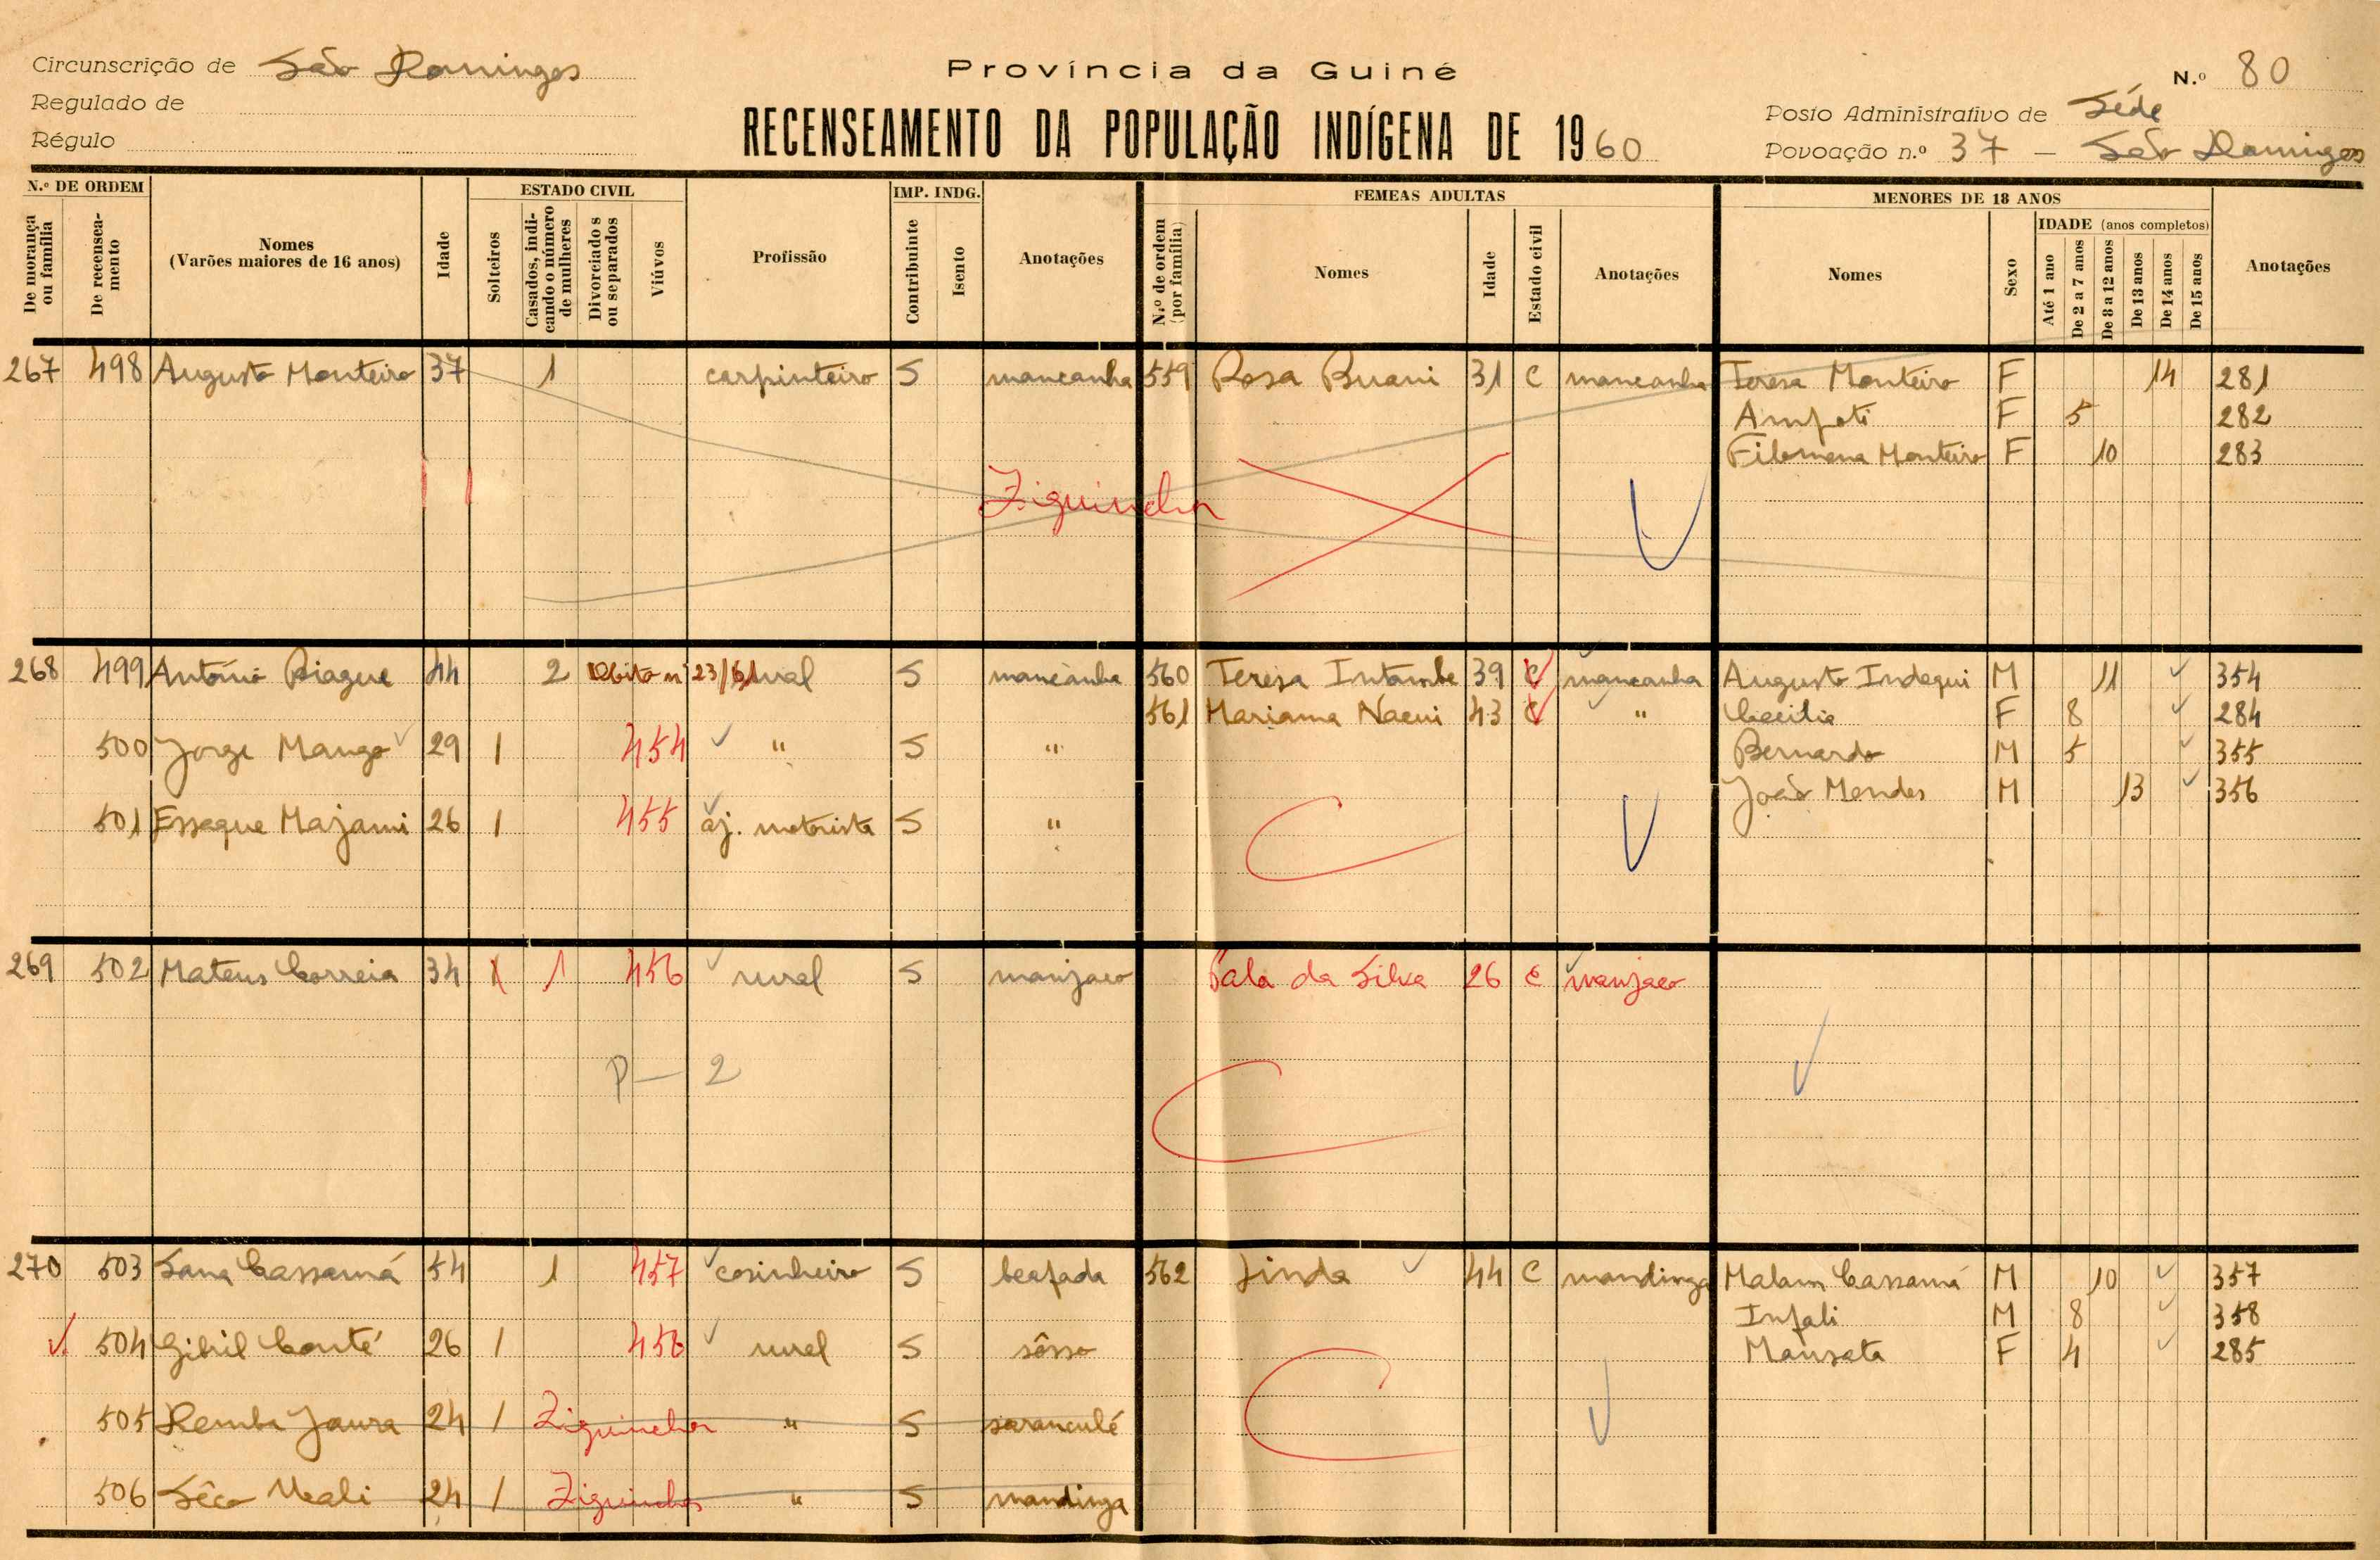 Circunscrição de São Domingos
Província da Guiné
N.º 80
Regulado de
Posto Administrativo de Séde
Régulo
RECENSEAMENTO DA POPULAÇÃO INDÍGENA DE 1960
Povoação n.º 37 — São Domingos
N.º DE ORDEM
De morança ou família
De recensea-mento
Nomes
(Varões maiores de 16 anos)
Idade
ESTADO CIVIL
Solteiros
Casados, indi-cando o número de mulheres
Divorciados ou separados
Viúvos
Profissão
IMP. INDG.
Contribuinte
Isento
Anotações
FEMEAS ADULTAS
N.º de ordem (por família)
Nomes
Idade
Estado civil
Anotações
MENORES DE 18 ANOS
Nomes
Sexo
IDADE (anos completos)
Até 1 ano
De 2 a 7 anos
De 8 a 12 anos
De 13 anos
De 14 anos
De 15 anos
Anotações
267 498 Augusto Monteiro 37 1 carpinteiro S mancanha 559 Rosa Buani 31 C mancanha Teresa Monteiro F 14 281
Ampoti F 5 282
Filomena Monteiro F 10 283
Ziguinchor
268 499 António Biague 44 2 Obito nº 23/61 rural S mancanha 560 Teresa Intambe 39 C mancanha Augusto Indequi M 11 354
561 Mariama Nacui 43 C " Cecilia F 8 284
500 Jorge Mango 29 1 454 " S " Bernardo M 5 355
João Mendes M 13 356
501 Essaque Majami 26 1 455 aj. motorista S "
269 502 Mateus Correia 34 1 1 456 rural S manjaco Pala da Silva 26 C manjaco
P — 2
270 503 Sana Cassamá 54 1 457 cosinheiro S beafada 562 Linda 44 C mandinga Malam Cassamá M 10 357
Infali M 8 358
504 Gibril Conté 26 1 456 rural S sôsso Mansata F 4 285
505 Demba Jaura 24 1 Ziguinchor " S saranculé
506 Sêco 24 1 Ziguinchor " S mandinga